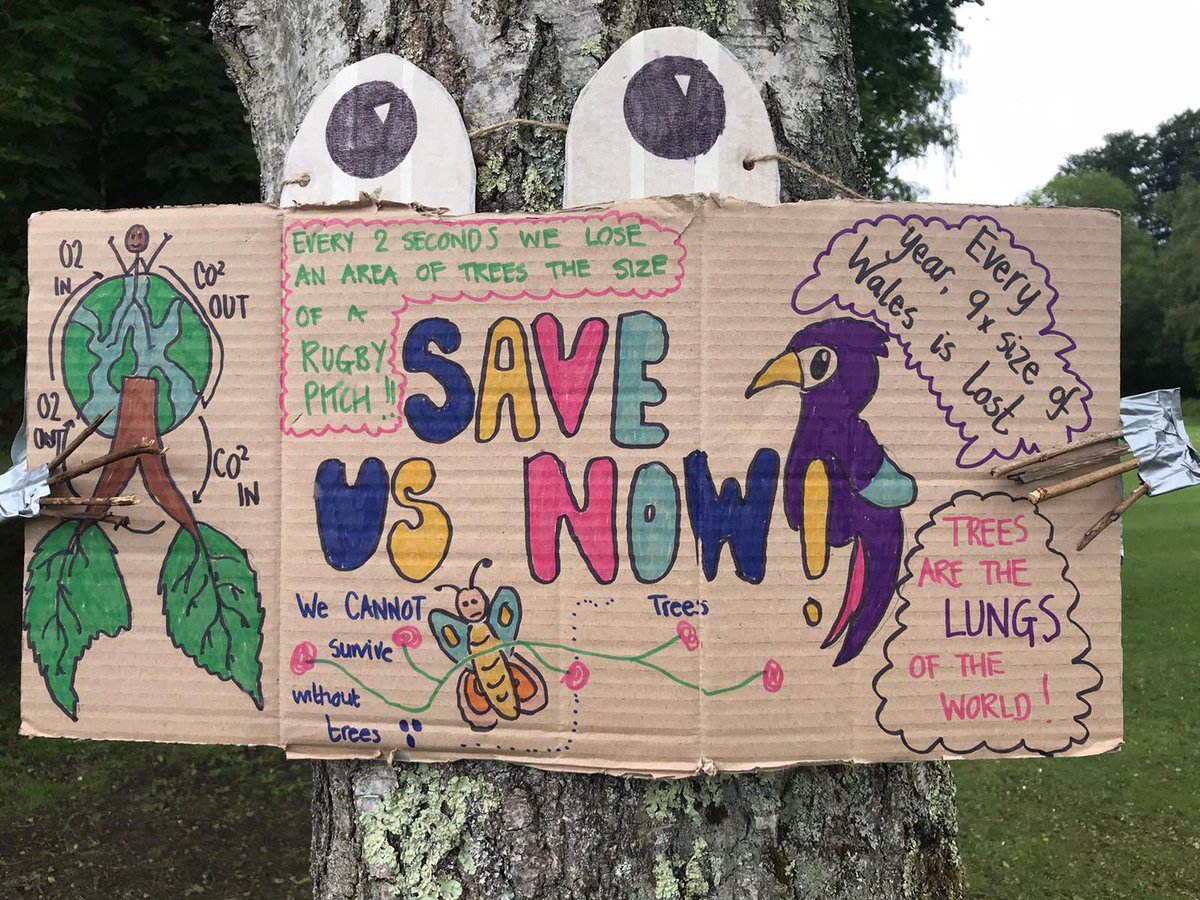 O2
IN
CO²
OUT
O2
OUT
CO²
IN
EVERY 2 SECONDS WE LOSE
AN AREA OF TREES THE SIZE
OF A
RUGBY
PITCH!!
SAVE
US NOW!
Every
year, 9x size of
Wales is lost
We CANNOT
survive
without
trees
Trees
TREES
ARE THE
LUNGS
OF THE
WORLD!